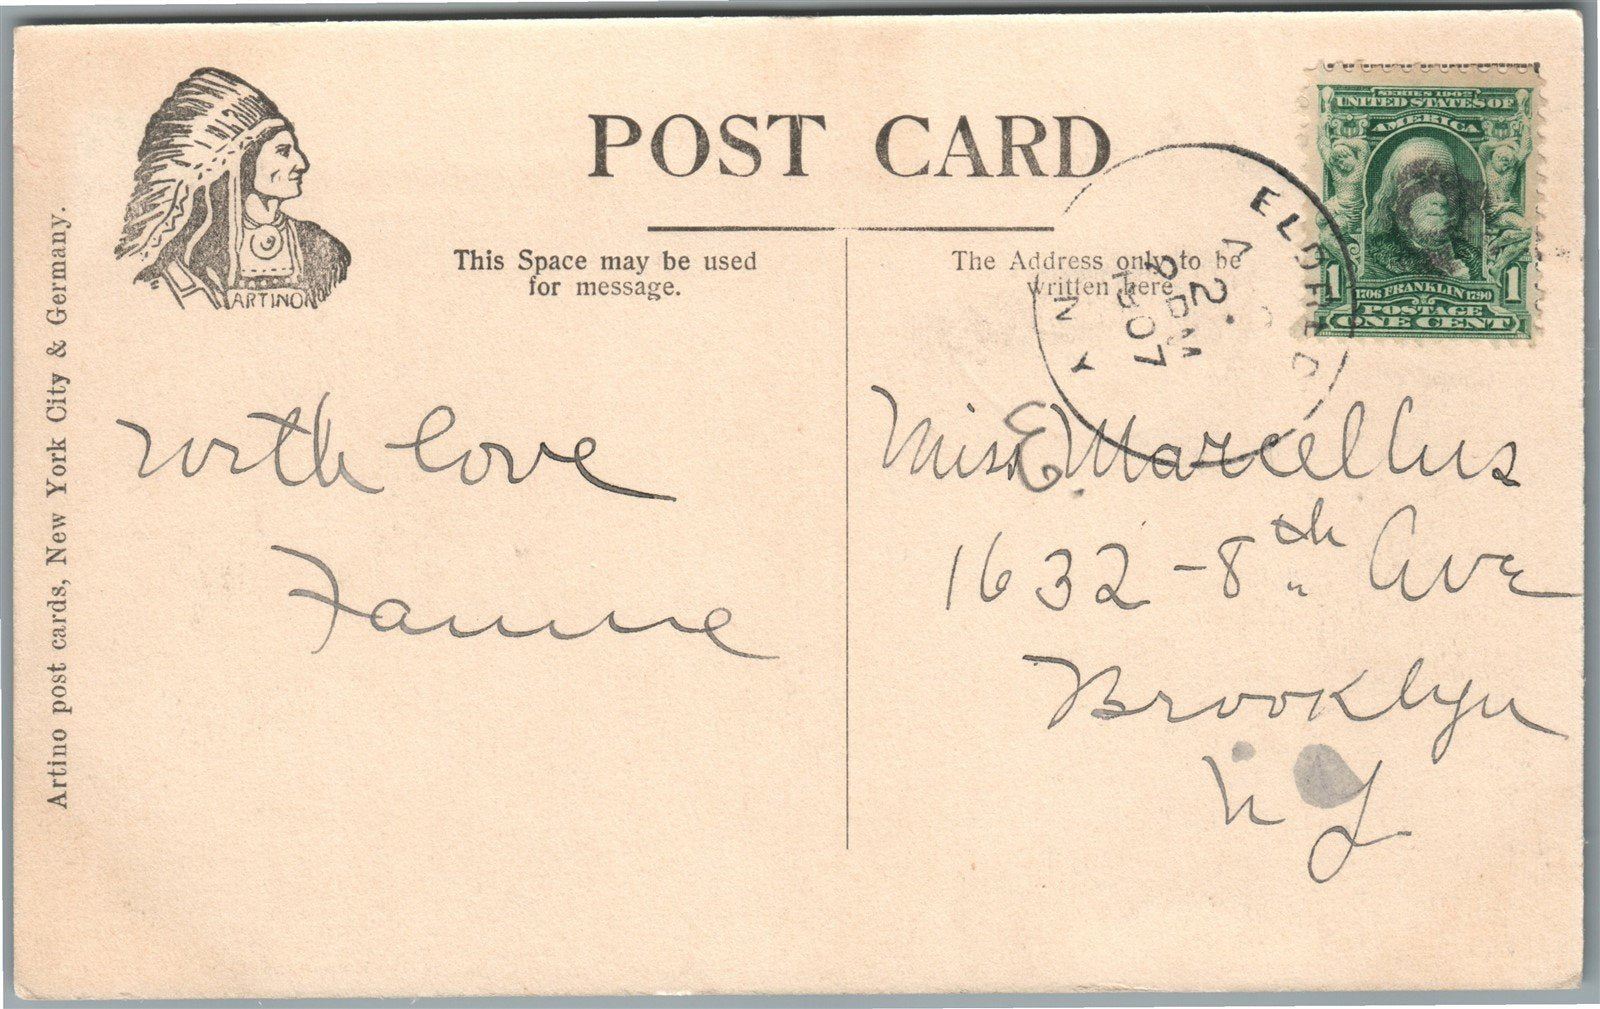 POST CARD
This Space may be used
for message.
The Address only to be
written here
ARTINO
Artino post cards, New York City & Germany.
SERIES 1902
UNITED STATES OF
AMERICA
1706 FRANKLIN 1790
1 1
POSTAGE
ONE CENT
ELDRED
N Y
2
PM
1907
With love
Fannie
Miss E. Marcellus
1632 - 8th Ave
Brooklyn
N Y